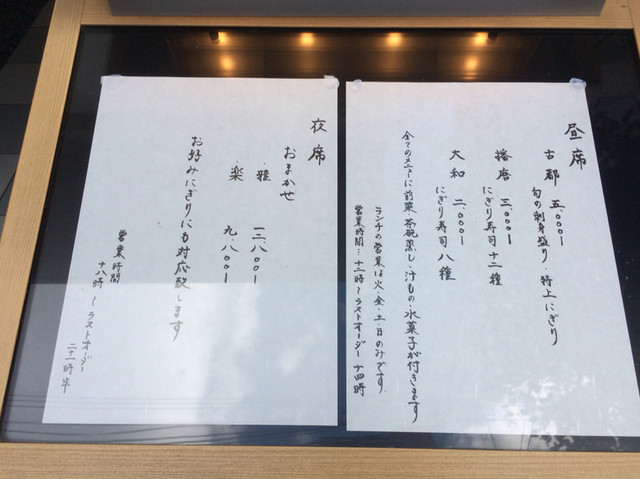 昼席
古都 五、〇〇〇ー
旬の刺身盛り・特上にぎり
播磨 三、〇〇〇ー
にぎり寿司十二種
大和 二、〇〇〇ー
にぎり寿司八種
全てのメニューに前菜・茶碗蒸し・汁もの・水菓子が付きます
ランチの営業は火・金・土・日のみです
営業時間…十二時〜ラストオーダー十四時
夜席
おまかせ
・雅 一三、八〇〇ー
・楽 九、八〇〇ー
お好みにぎりにも対応致します
営業時間
十八時〜ラストオーダー
二十一時半